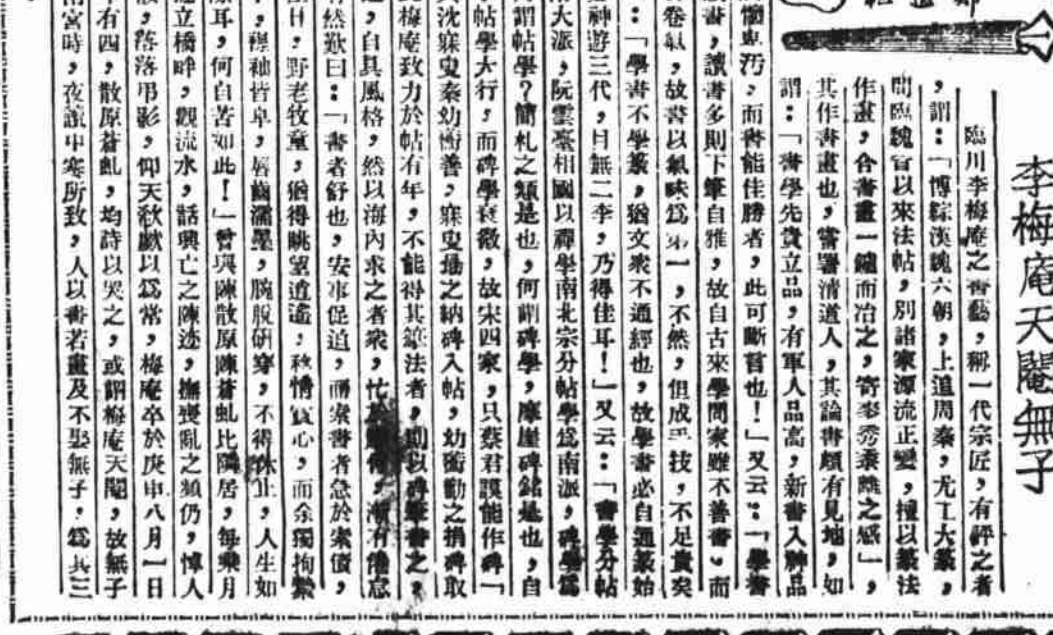 李梅庵天閹無子
臨川李梅庵之書藝，稱一代宗匠，有評之者
，謂：「博綜漢魏六朝，上追周秦，尤工大篆，
間臨魏晉以來法帖，別諸家源流正變，擅以篆法
作畫，合書畫一鑪而冶之，寄麥秀黍離之感」，
其作書畫也，嘗署清道人，其論書頗有見地，如
謂：「書學先貴立品，有軍人品高，新書入神品
卑污，而書能佳勝者，此可斷言也！」又云：「學書
讀書，讀書多則下筆自雅，故自古來學問家雖不善書，而
卷氣，故書以氣味爲第一，不然，但成手技，不足貴矣
：「學書不學篆，猶文家不通經也，故學書必自通篆始
神遊三代，目無二李，乃得佳耳！」又云：「書學分帖
大派，阮雲臺相國以禪學南北宗分帖學爲南派，碑學爲
謂帖學？簡札之類是也，何謂碑學，摩崖碑銘是也，自
帖學大行，而碑學衰微，故宋四家，只蔡君謨能作碑」
沈寐叟秦幼衡善，寐叟勸之納碑入帖，幼衡勸之捐碑取
梅庵致力於帖有年，不能得其筆法者，則以碑筆書之，
，自具風格，然以海內求之者衆，忙於，漸有倦怠
然歎曰：「書者舒也，安事促迫，而索書者急於索債，
日，野老牧童，猶得眺望逍遙，移情賞心，而余獨拘縶
，襟袖皆皁，唇齒濡墨，腕脫研穿，不得休止，人生如
耳，何自苦如此！」曾與陳散原陳蒼虬比隣居，每乘月
立橋畔，觀流水，話興亡之陳迹，撫喪亂之頻仍，悼人
，落落弔影，仰天欷歔以爲常，梅庵卒於庚申八月一日
有四，散原蒼虬，均詩以哭之，或謂梅庵天閹，故無子
宮時，夜讀中寒所致，人以書若畫及不娶無子，爲其三